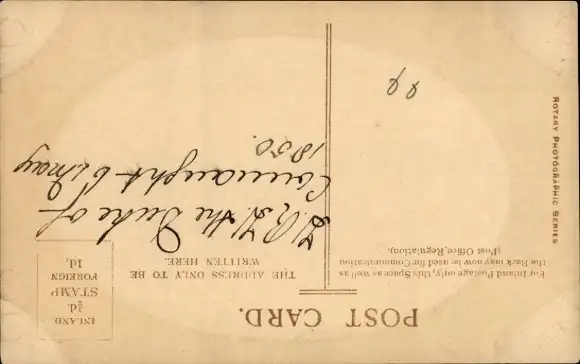 POST CARD.
For Inland Postage only, this Space as well as
the Back may now be used for Communication
(Post Office Regulation).
THE ADDRESS ONLY TO BE
WRITTEN HERE.
INLAND
½d
STAMP
FOREIGN
1d.
H.R.H. the Duke of
Connaught 6 May
1850.
ROTARY PHOTOGRAPHIC SERIES